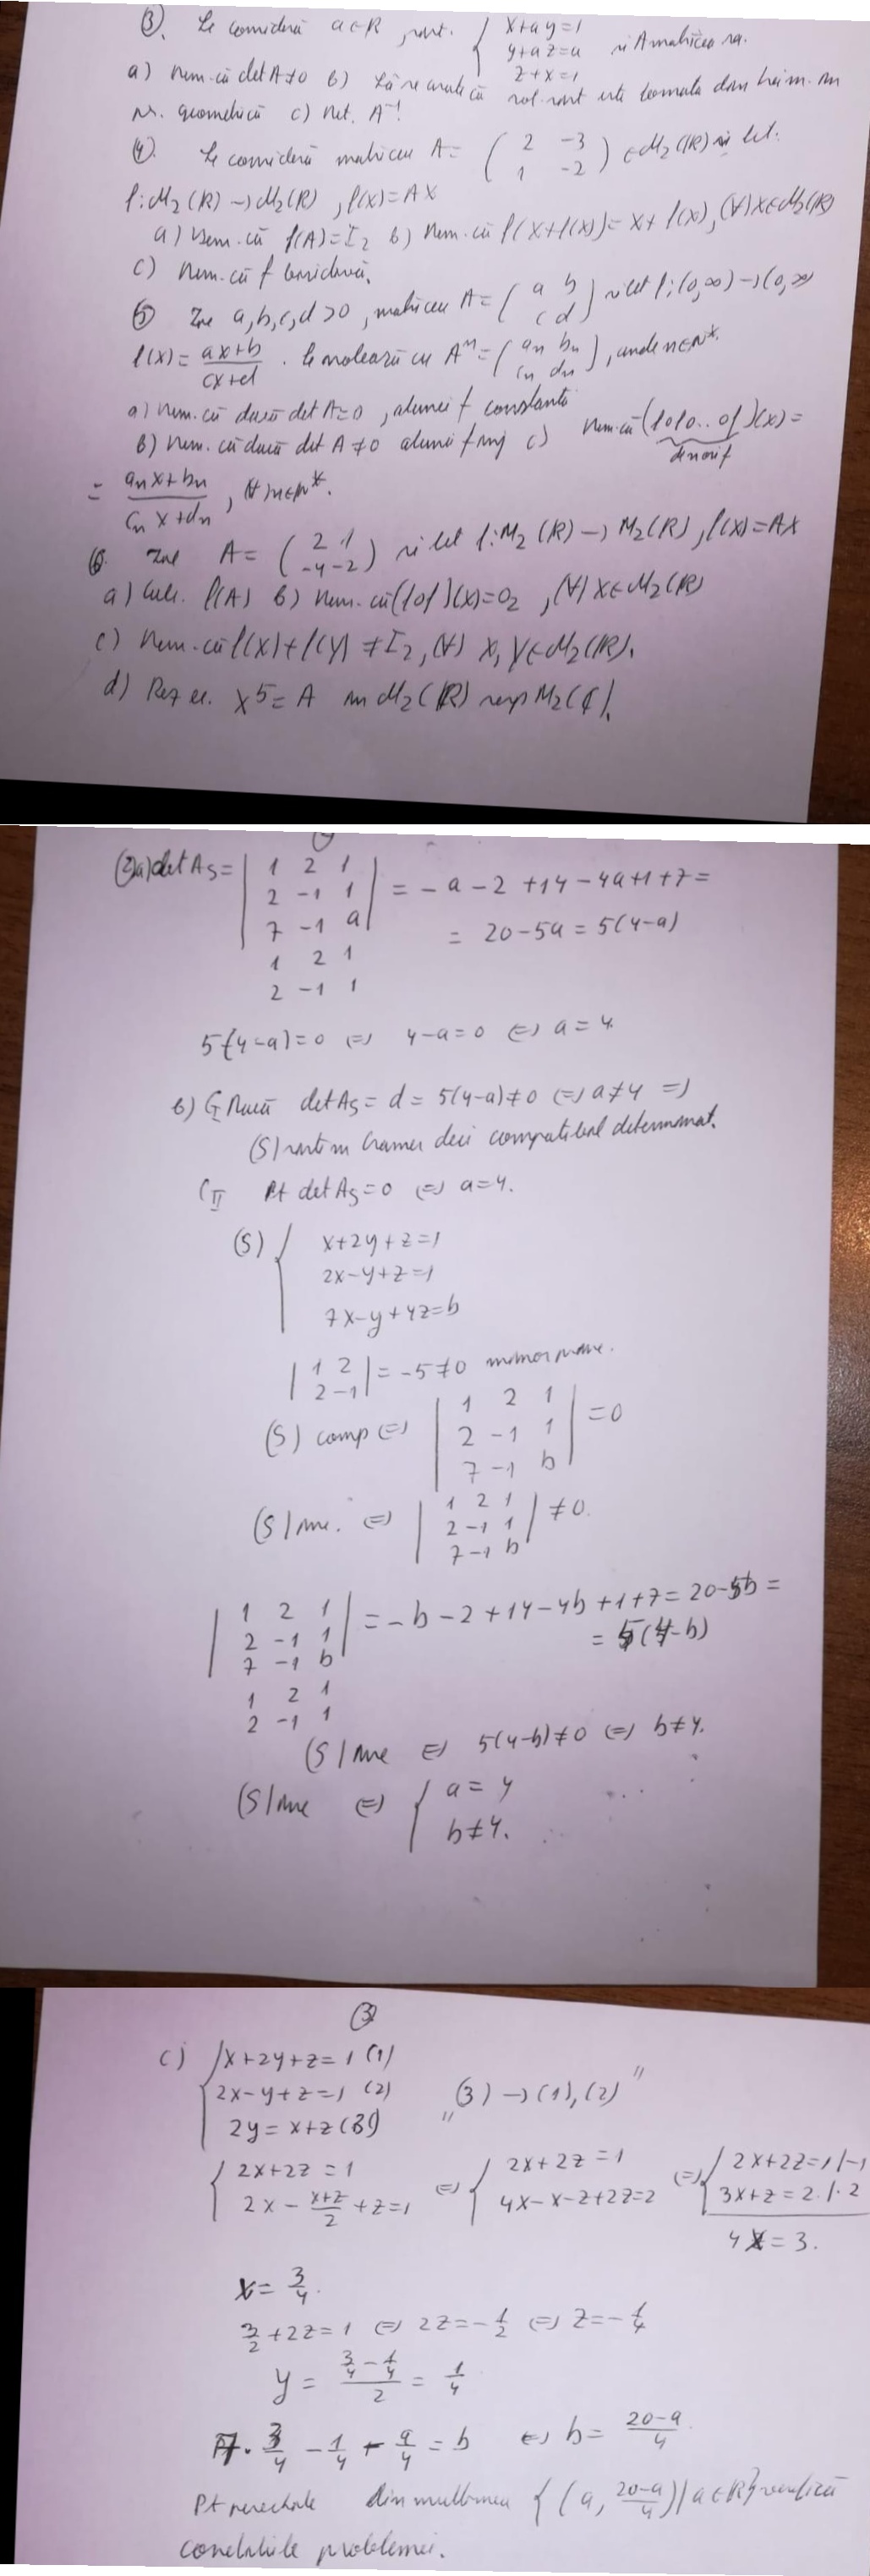 ③. Se consideră a∈R, sist. { x+ay=1
y+az=a și A matricea sa.
z+x=1
a) Dem. că det A≠0 b) Să se arate că sol. sist este formata din trei m. în
pr. geometrică c) Det. A⁻¹!
④. Se consideră matricea A= ( 2 -3
1 -2 ) ∈M₂(R) și fct.
f:M₂(R)→M₂(R), f(X)=AX
a) Dem. că f(A)=I₂ b) Dem. că f(X+f(X))=X+f(X), (∀)X∈M₂(R)
c) Dem. că f
⑤ Fie a,b,c,d >0, matricea A= ( a b
c d ) și fct f:(0,∞)→(0,∞)
f(x)= ax+b / cx+d . Se notează cu Aⁿ= ( an bn
cn dn ), unde n∈N*.
a) Dem. că dacă det A=0, atunci f constantă
b) Dem. că dacă det A≠0 atunci f inj c) Dem. că (fofo..of)(x)=
de n ori f
= anx+bn / cnx+dn , (∀)n∈N*.
6. Fie A= ( 2 1
-4 -2 ) și fct f:M₂(R)→M₂(R), f(X)=AX
a) Calc. f(A) b) Dem. că (fof)(X)=O₂, (∀)X∈M₂(R)
c) Dem. că f(X)+f(Y)≠I₂, (∀) X,Y∈M₂(R).
d) Rez ec. X⁵=A în M₂(R) resp M₂(C).
②a) det As= | 1 2 1
2 -1 1
7 -1 a | = -a-2+14-4a+1+7=
= 20-5a=5(4-a)
1 2 1
2 -1 1
5(4-a)=0 ⇔ 4-a=0 ⇔ a=4
b) C_I Dacă det As=d=5(4-a)≠0 ⇔ a≠4 ⇒
(S) sist în Cramer deci compatibil determinat.
C_II Pt det As=0 ⇔ a=4.
(S) { x+2y+z=1
2x-y+z=1
7x-y+4z=b
| 1 2
2 -1 | = -5≠0 minor princ.
(S) comp ⇔ | 1 2 1
2 -1 1
7 -1 b | =0
(S) inc. ⇔ | 1 2 1
2 -1 1
7 -1 b | ≠0.
| 1 2 1
2 -1 1
7 -1 b | = -b-2+14-4b+1+7=20-5b=
= 5(4-b)
1 2 1
2 -1 1
(S) inc ⇔ 5(4-b)≠0 ⇔ b≠4.
(S) inc ⇔ { a=4
b≠4.
③
c) { x+2y+z=1 (1)
2x-y+z=1 (2)
2y=x+z (3)
„(3)→(1),(2)”
{ 2x+2z=1
2x- x+z / 2 +z=1
⇔ { 2x+2z=1
4x-x-z+2z=2
⇔ { 2x+2z=1 /·-1
3x+z=2. /·2
4x=3.
x= 3/4.
3/2+2z=1 ⇔ 2z=-1/2 ⇔ z=-1/4
y= 3/4-1/4 / 2 = 1/4
7· 3/4 - 1/4 - a/4 = b ⇔ b= 20-a / 4
Pt perechile din mulțimea { (a, 20-a / 4) | a∈R} verifică
condițiile problemei.